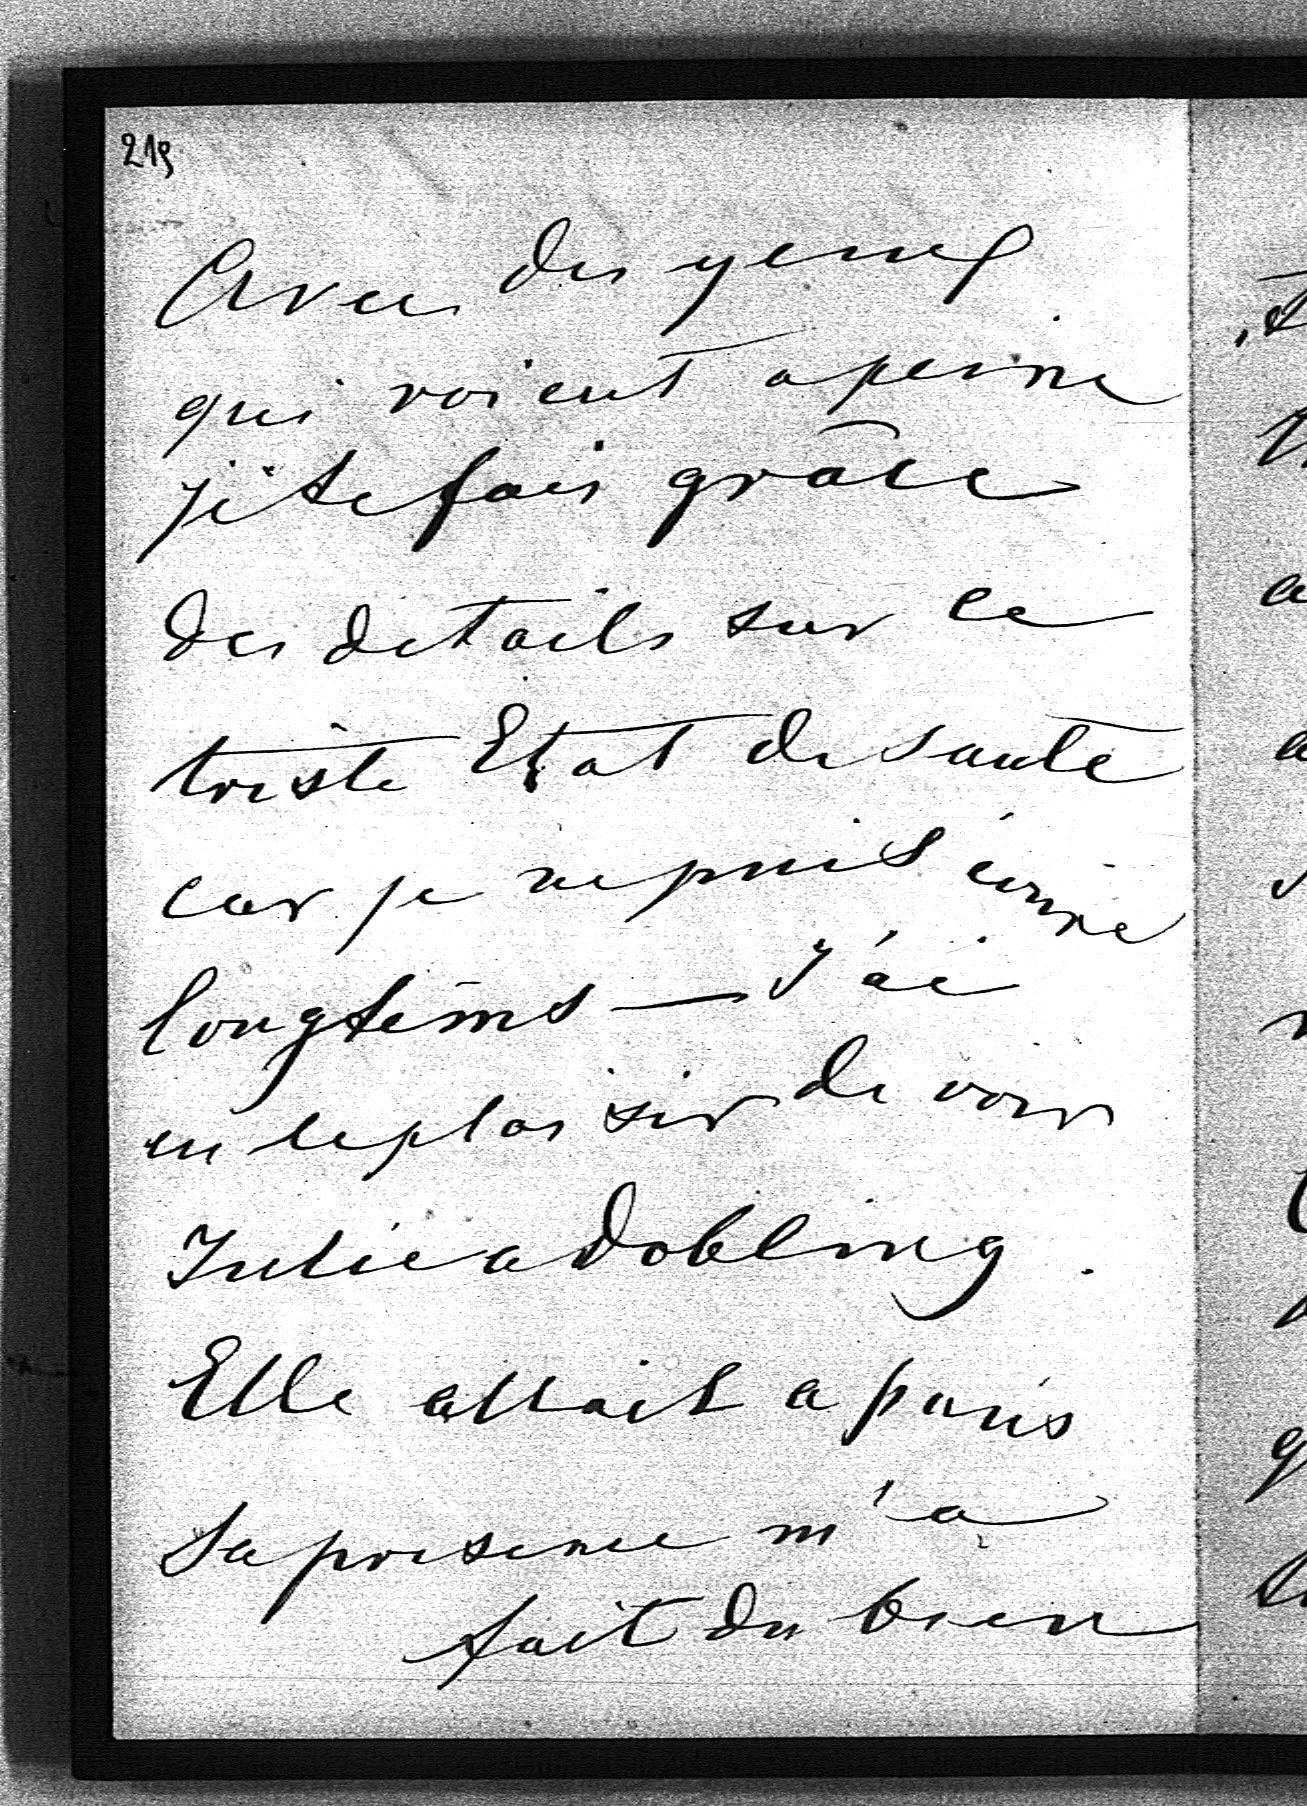 219
Avec des yeux
qui voient a peine
je te fais grâce
des details sur ce
triste Etat de santé
car je ne puis écrire
longtems — J'ai
eu le plaisir de voir
Julie a Dobling.
Elle allait a paris
Sa presence m'a
fait du bien